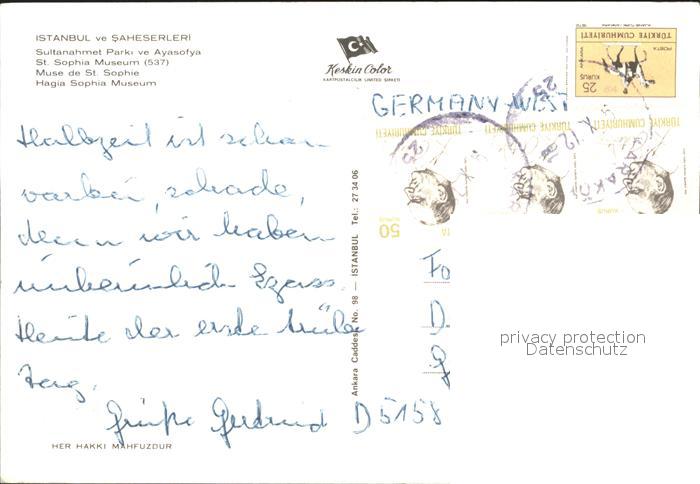 ISTANBUL ve ŞAHESERLERİ
Sultanahmet Parkı ve Ayasofya
St. Sophia Museum (537)
Muse de St. Sophie
Hagia Sophia Museum
Keskin Color
KARTPOSTALCILIK LİMİTED ŞİRKETİ
TÜRKİYE CUMHURİYETİ
POSTA
25
KURUŞ
GERMANY WEST
TÜRKİYE CUMHURİYETİ
TÜRKİYE CUMHURİYETİ
TÜRKİYE CUMHURİYETİ
50
KURUŞ
Halbzeit ist schon
vorbei, schade,
denn wir haben
unheimlich Spass.
Heute der erste trübe
Tag.
Grüße Gertrud
D 5158
Fa
D
Ankara Caddesi No. 98 — ISTANBUL Tel.: 27 34 06
privacy protection
Datenschutz
HER HAKKI MAHFUZDUR